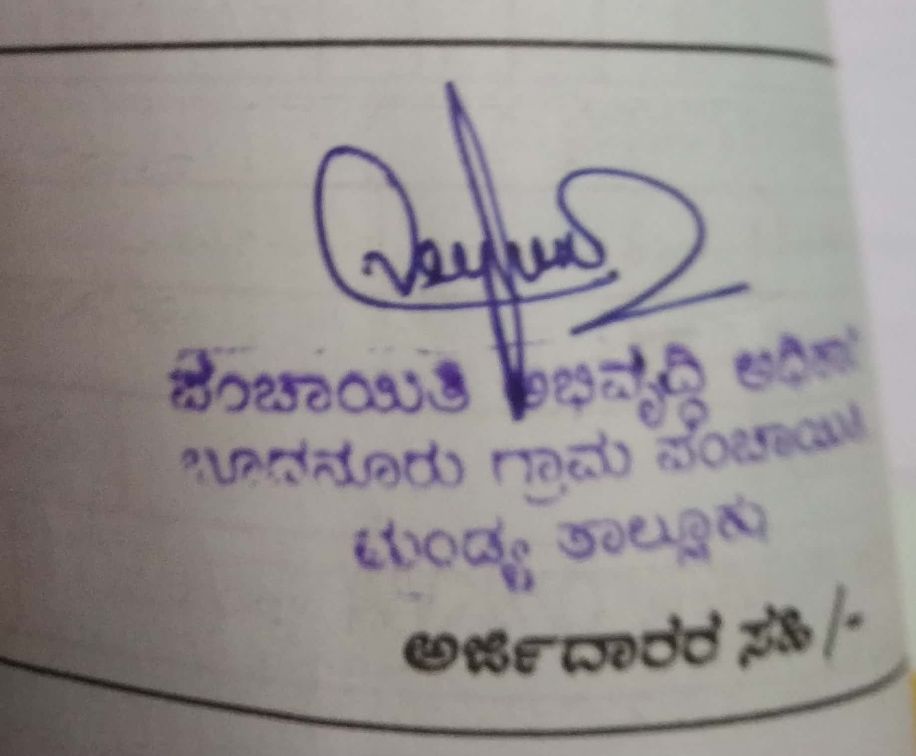 ಪಂಚಾಯಿತಿ ಅಭಿವೃದ್ಧಿ ಅಧಿಕಾರಿ
ಬೂದನೂರು ಗ್ರಾಮ ಪಂಚಾಯಿತಿ
ಮಂಡ್ಯ ತಾಲ್ಲೂಕು
ಅರ್ಜಿದಾರರ ಸಹಿ/-